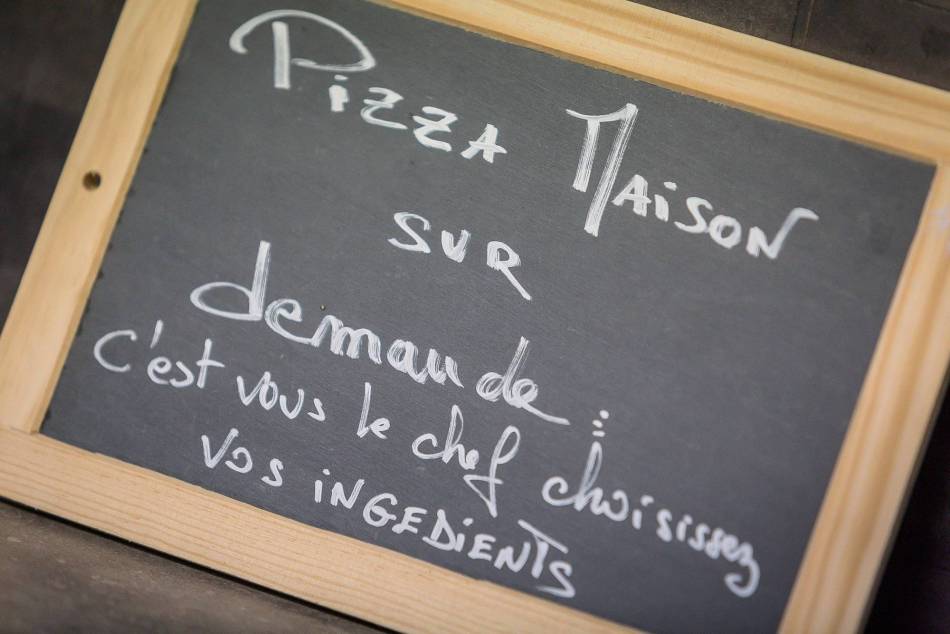 Pizza Maison
SUR
demande
C'est vous le chef : choisissez
vos iNGEDiENTS